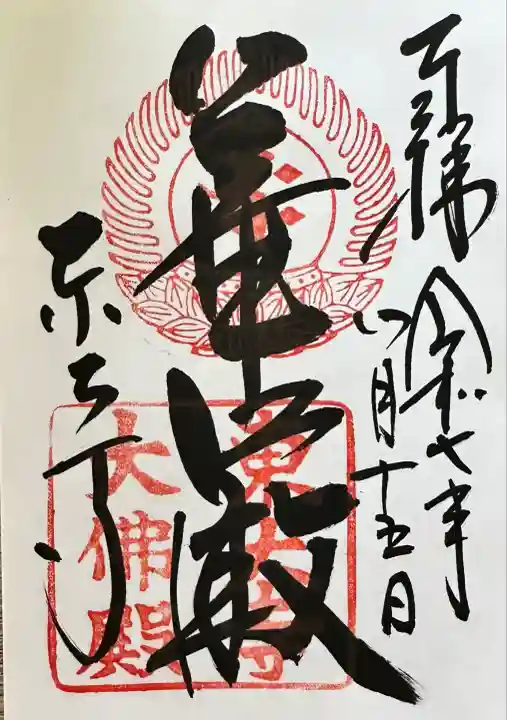 奉拝
令和七年
八月十五日
華嚴
東大寺
東大寺
大佛殿